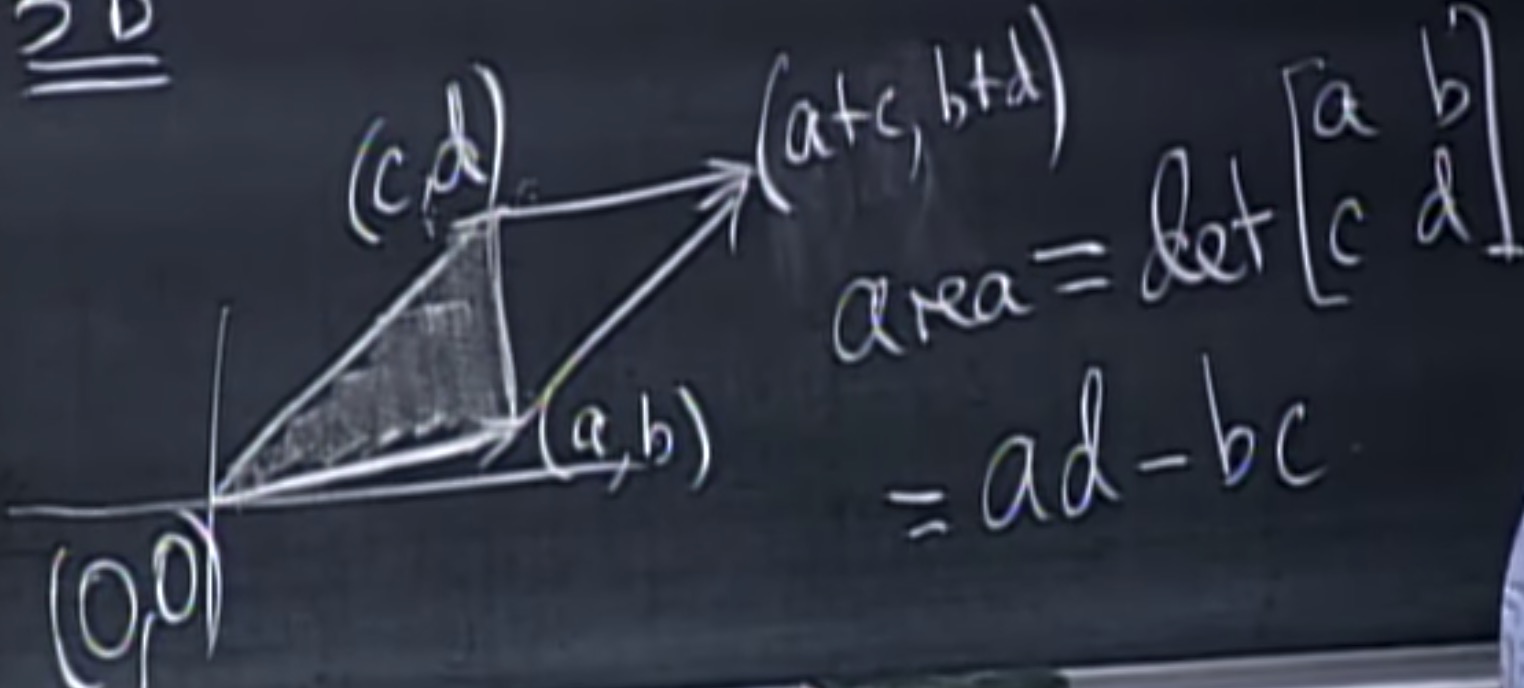 (c,d)
(a+c, b+d)
(a,b)
(0,0)
area = det [a b
c d]
= ad - bc